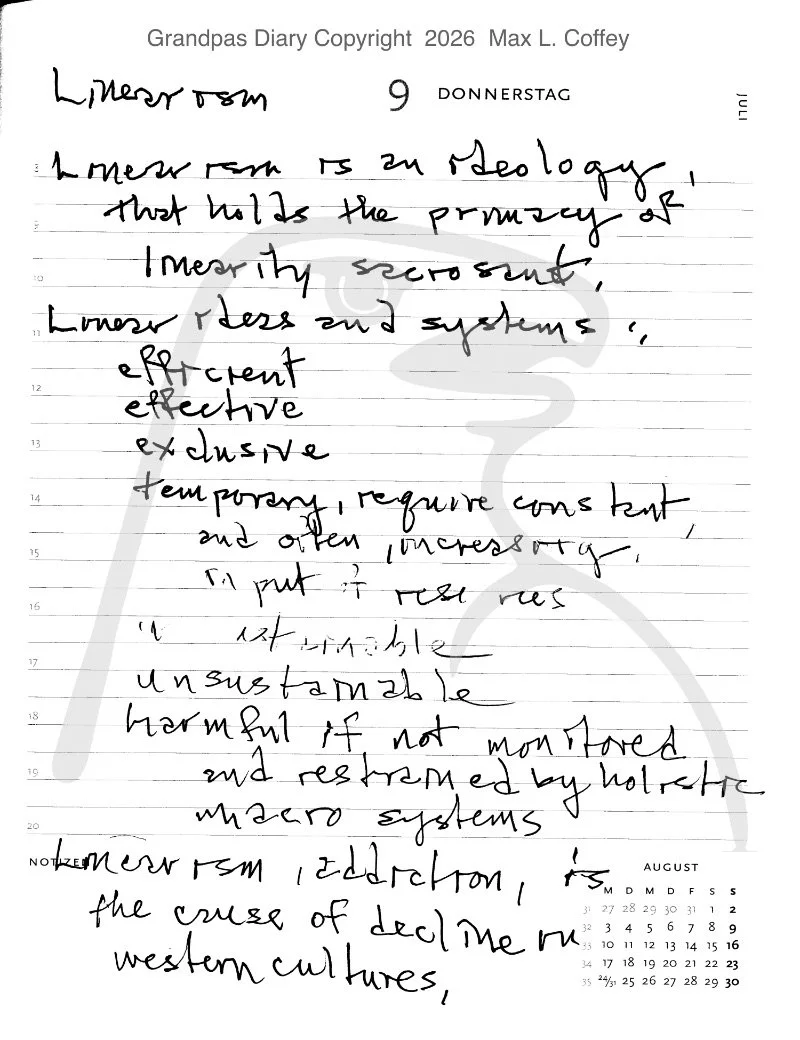 Grandpas Diary Copyright 2026 Max L. Coffey
Linearism
9 DONNERSTAG
JULI
Linearism is an ideology,
that holds the primacy of
linearity sacrosanct,
Linear ideas and systems :,
efficient
effective
exclusive
temporary, require constant,
and often, increasing,
input of
unsustainable
harmful if not monitored
and restrained by holistic
macro systems
NOTIZEN
Linearism, addiction, is
the cause of decline in
western cultures,
8
9
10
11
12
13
14
15
16
17
18
19
20
AUGUST
M D M D F S S
31 27 28 29 30 31 1 2
32 3 4 5 6 7 8 9
33 10 11 12 13 14 15 16
34 17 18 19 20 21 22 23
35 24/31 25 26 27 28 29 30